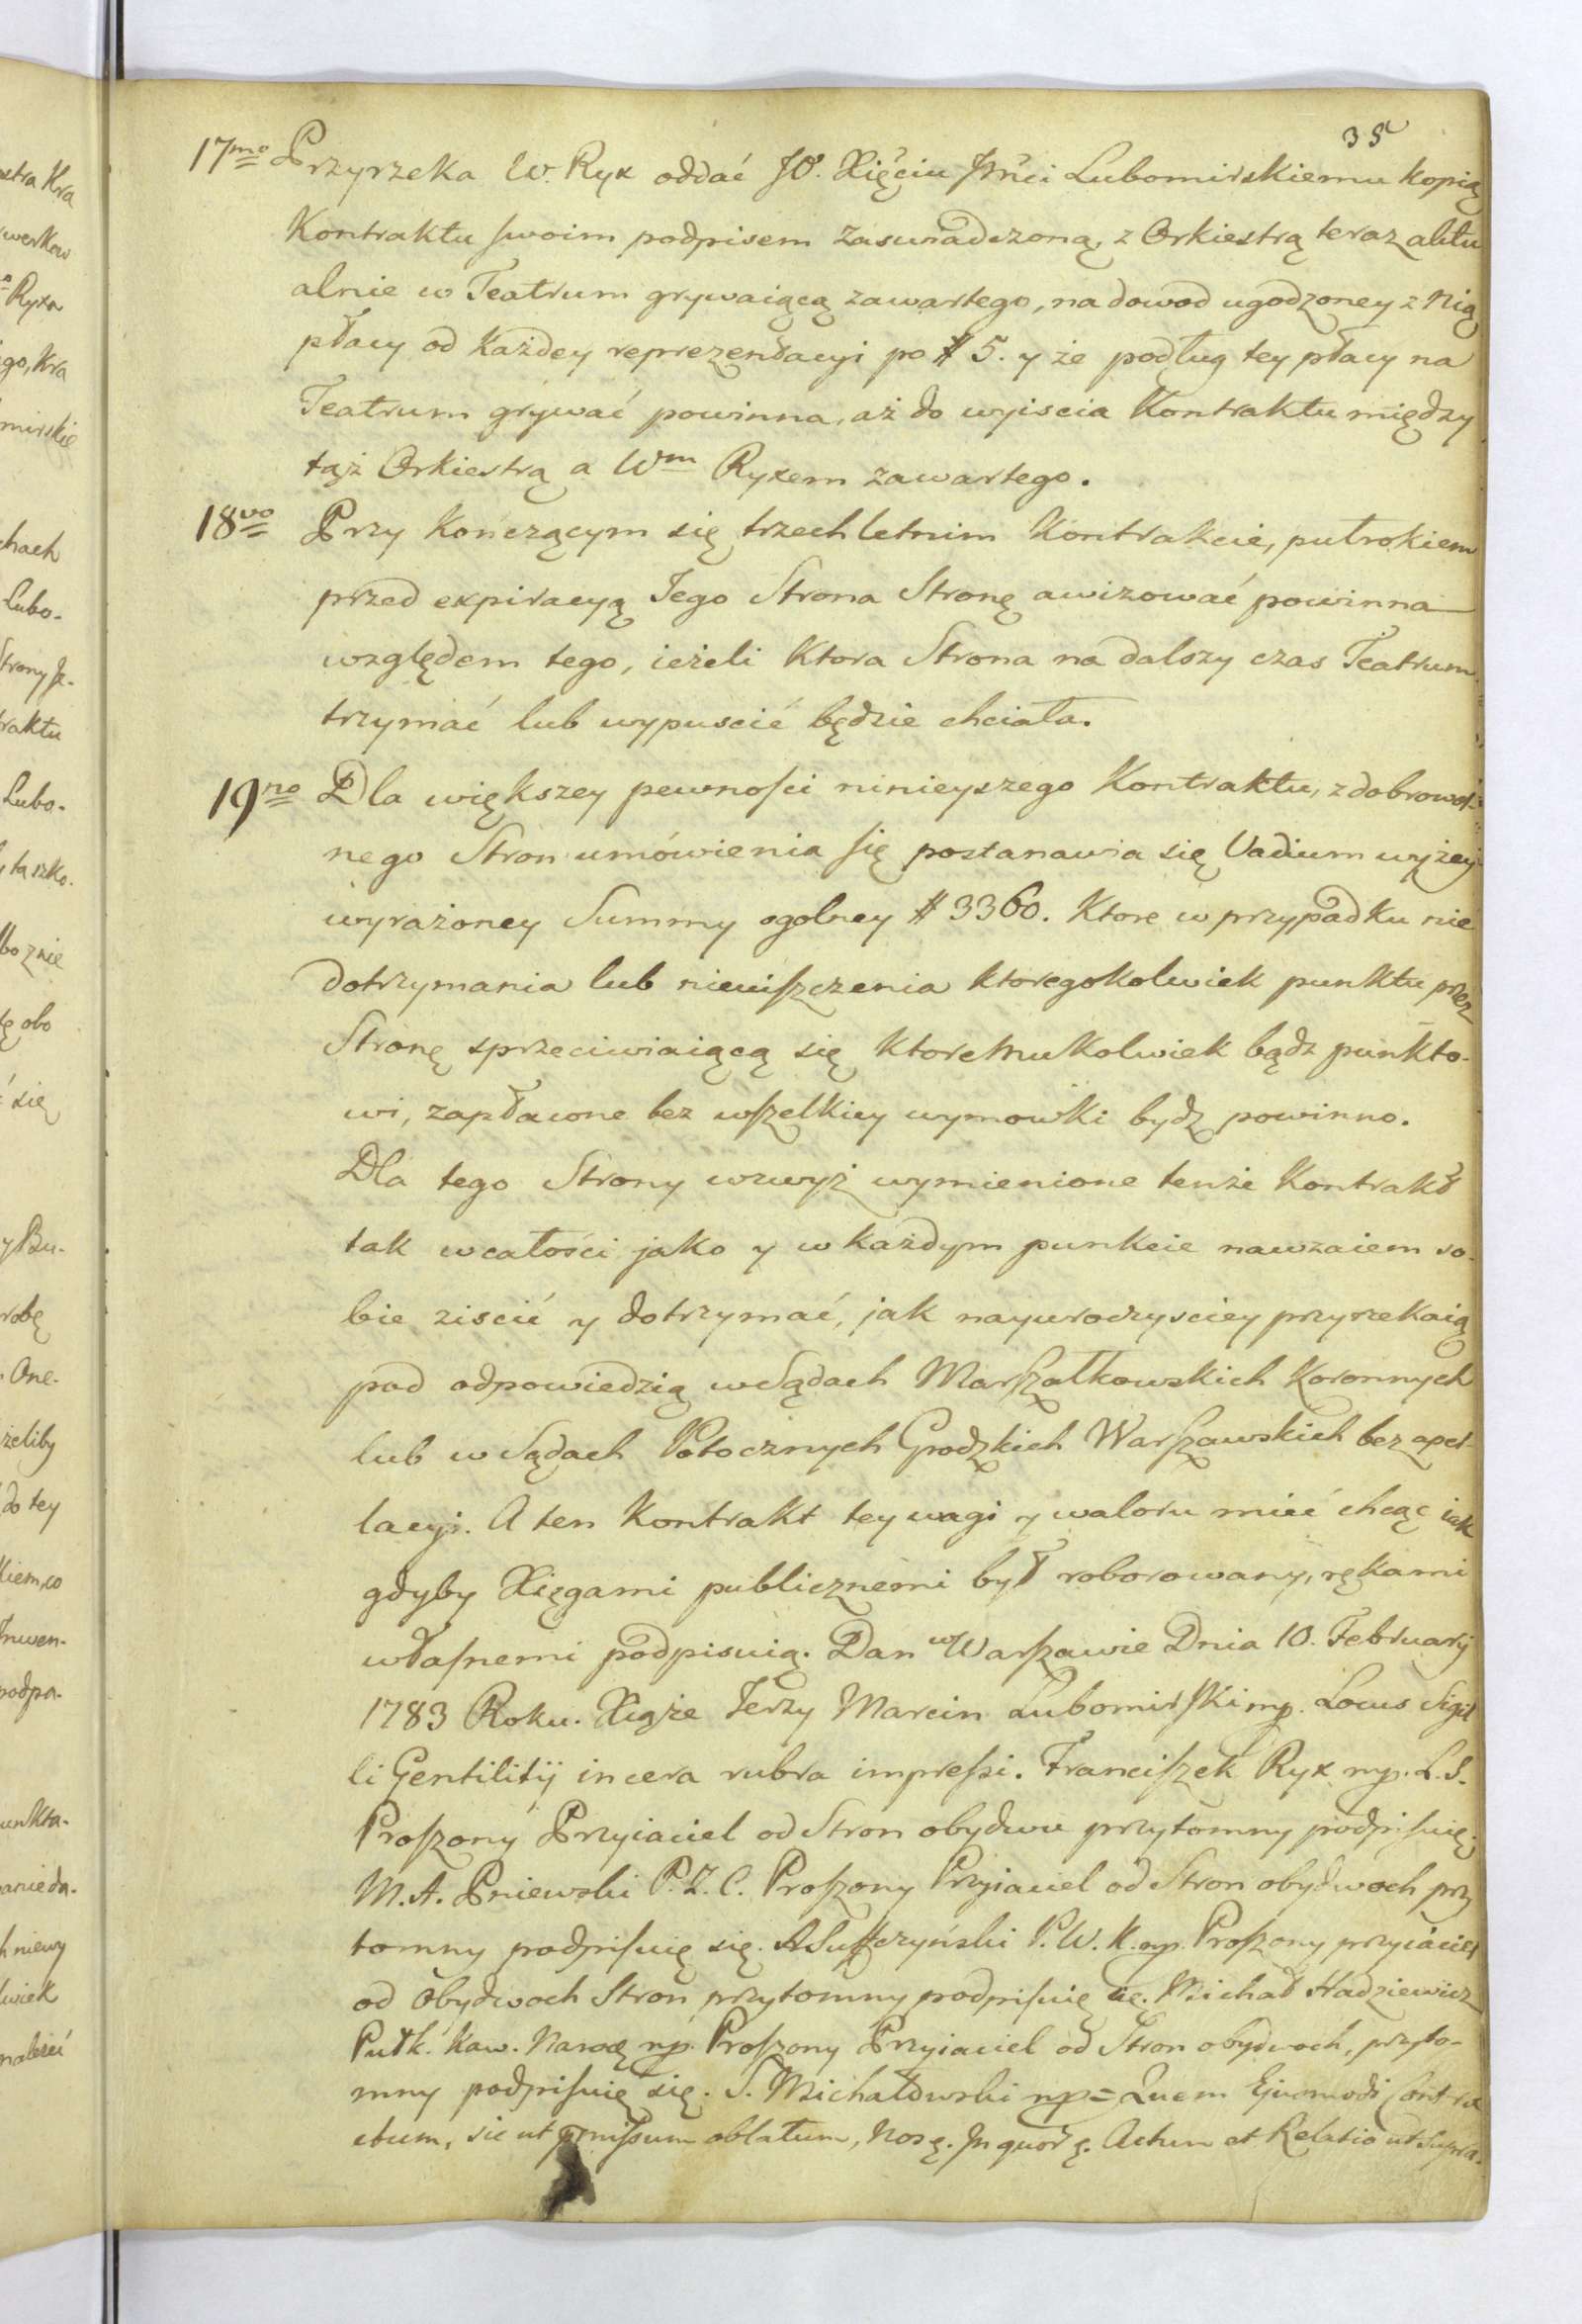 35
17mo Przyrzeka W. Ryx oddać JO. Xięciu Jmci Lubomirskiemu kopią
Kontraktu swoim podpisem zaswiadczoną, z Orkiestrą teraz aktu
alnie w Teatrum grywaiącą zawartego, na dowod ugodzoney z Nią
płacy od każdey reprezentacyi po # 5. y że podług tey płacy na
Teatrum grywać powinna, aż do wyiscia Kontraktu między
tąż Orkiestrą a Wm Ryxem zawartego.
18vo Przy kończącym się trzechletnim Kontrakcie, pułrokiem
przed expiracyą Jego Strona Stronę awizować powinna
względem tego, ieżeli ktora Strona na dalszy czas Teatrum
trzymać lub wypuscić będzie chciała.
19no Dla większey pewności ninieyszego Kontraktu, z dobrowol-
nego Stron umówienia się postanawia się Vadium wyżey
wyrażoney Summy ogolney # 3360. Ktore w przypadku nie
dotrzymania lub nieuiszczenia ktoregokolwiek punktu przez
Stronę sprzeciwiaiącą się ktoremukolwiek bądz punkto-
wi, zapłacone bez wszelkiey wymowki bydz powinno.
Dla tego Strony wzwyż wymienione tenże Kontrakt
tak w całości jako y w każdym punkcie nawzaiem so-
bie ziscić y dotrzymać, jak nayuroczysciey przyrzekaią
pod odpowiedzią w Sądach Marszałkowskich Koronnych
lub w Sądach Potocznych Grodzkich Warszawskich bez apel-
lacyi. A ten Kontrakt tey wagi y waloru mieć chcąc iak
gdyby Xięgami publicznemi był roborowany, rękami
własnemi podpisuią. Dan w Warszawie Dnia 10. Februarij
1783 Roku. Xiąże Jerzy Marcin Lubomirski mp. Locus Sigil
li Gentilitij in cera rubra impressi. Franciszek Ryx mp. L.S.
Proszony Przyiaciel od Stron obydwu przytomny podpisuię.
M.A. Pniewski P.Z.C. Proszony Przyiaciel od Stron obydwoch przy
tomny podpisuię się. A Suffczyński P.W.K. mp. Proszony przyiaciel
od Obydwoch Stron przytomny podpisuię się. Michał Hadziewicz
Pułk. Kaw. Narod mp. Proszony Przyiaciel od Stron obydwoch, przyto-
mny podpisuię się. S. Michałowski mp = Quem Ejusmodi Contra
ctum, sic ut oblatum, Actum et Relatio ut Supra.